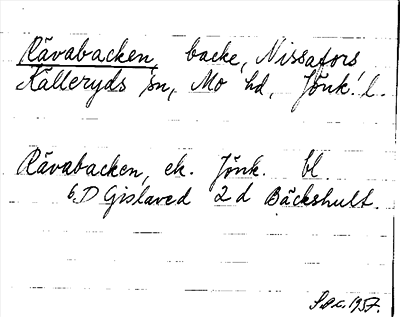 Rävabacken, backe, Nissafors
Källeryds sn, Mo hd, Jönk. l.
Rävabacken, ek. Jönk. bl.
6 D Gislaved 2 d Bäckshult.
1957.